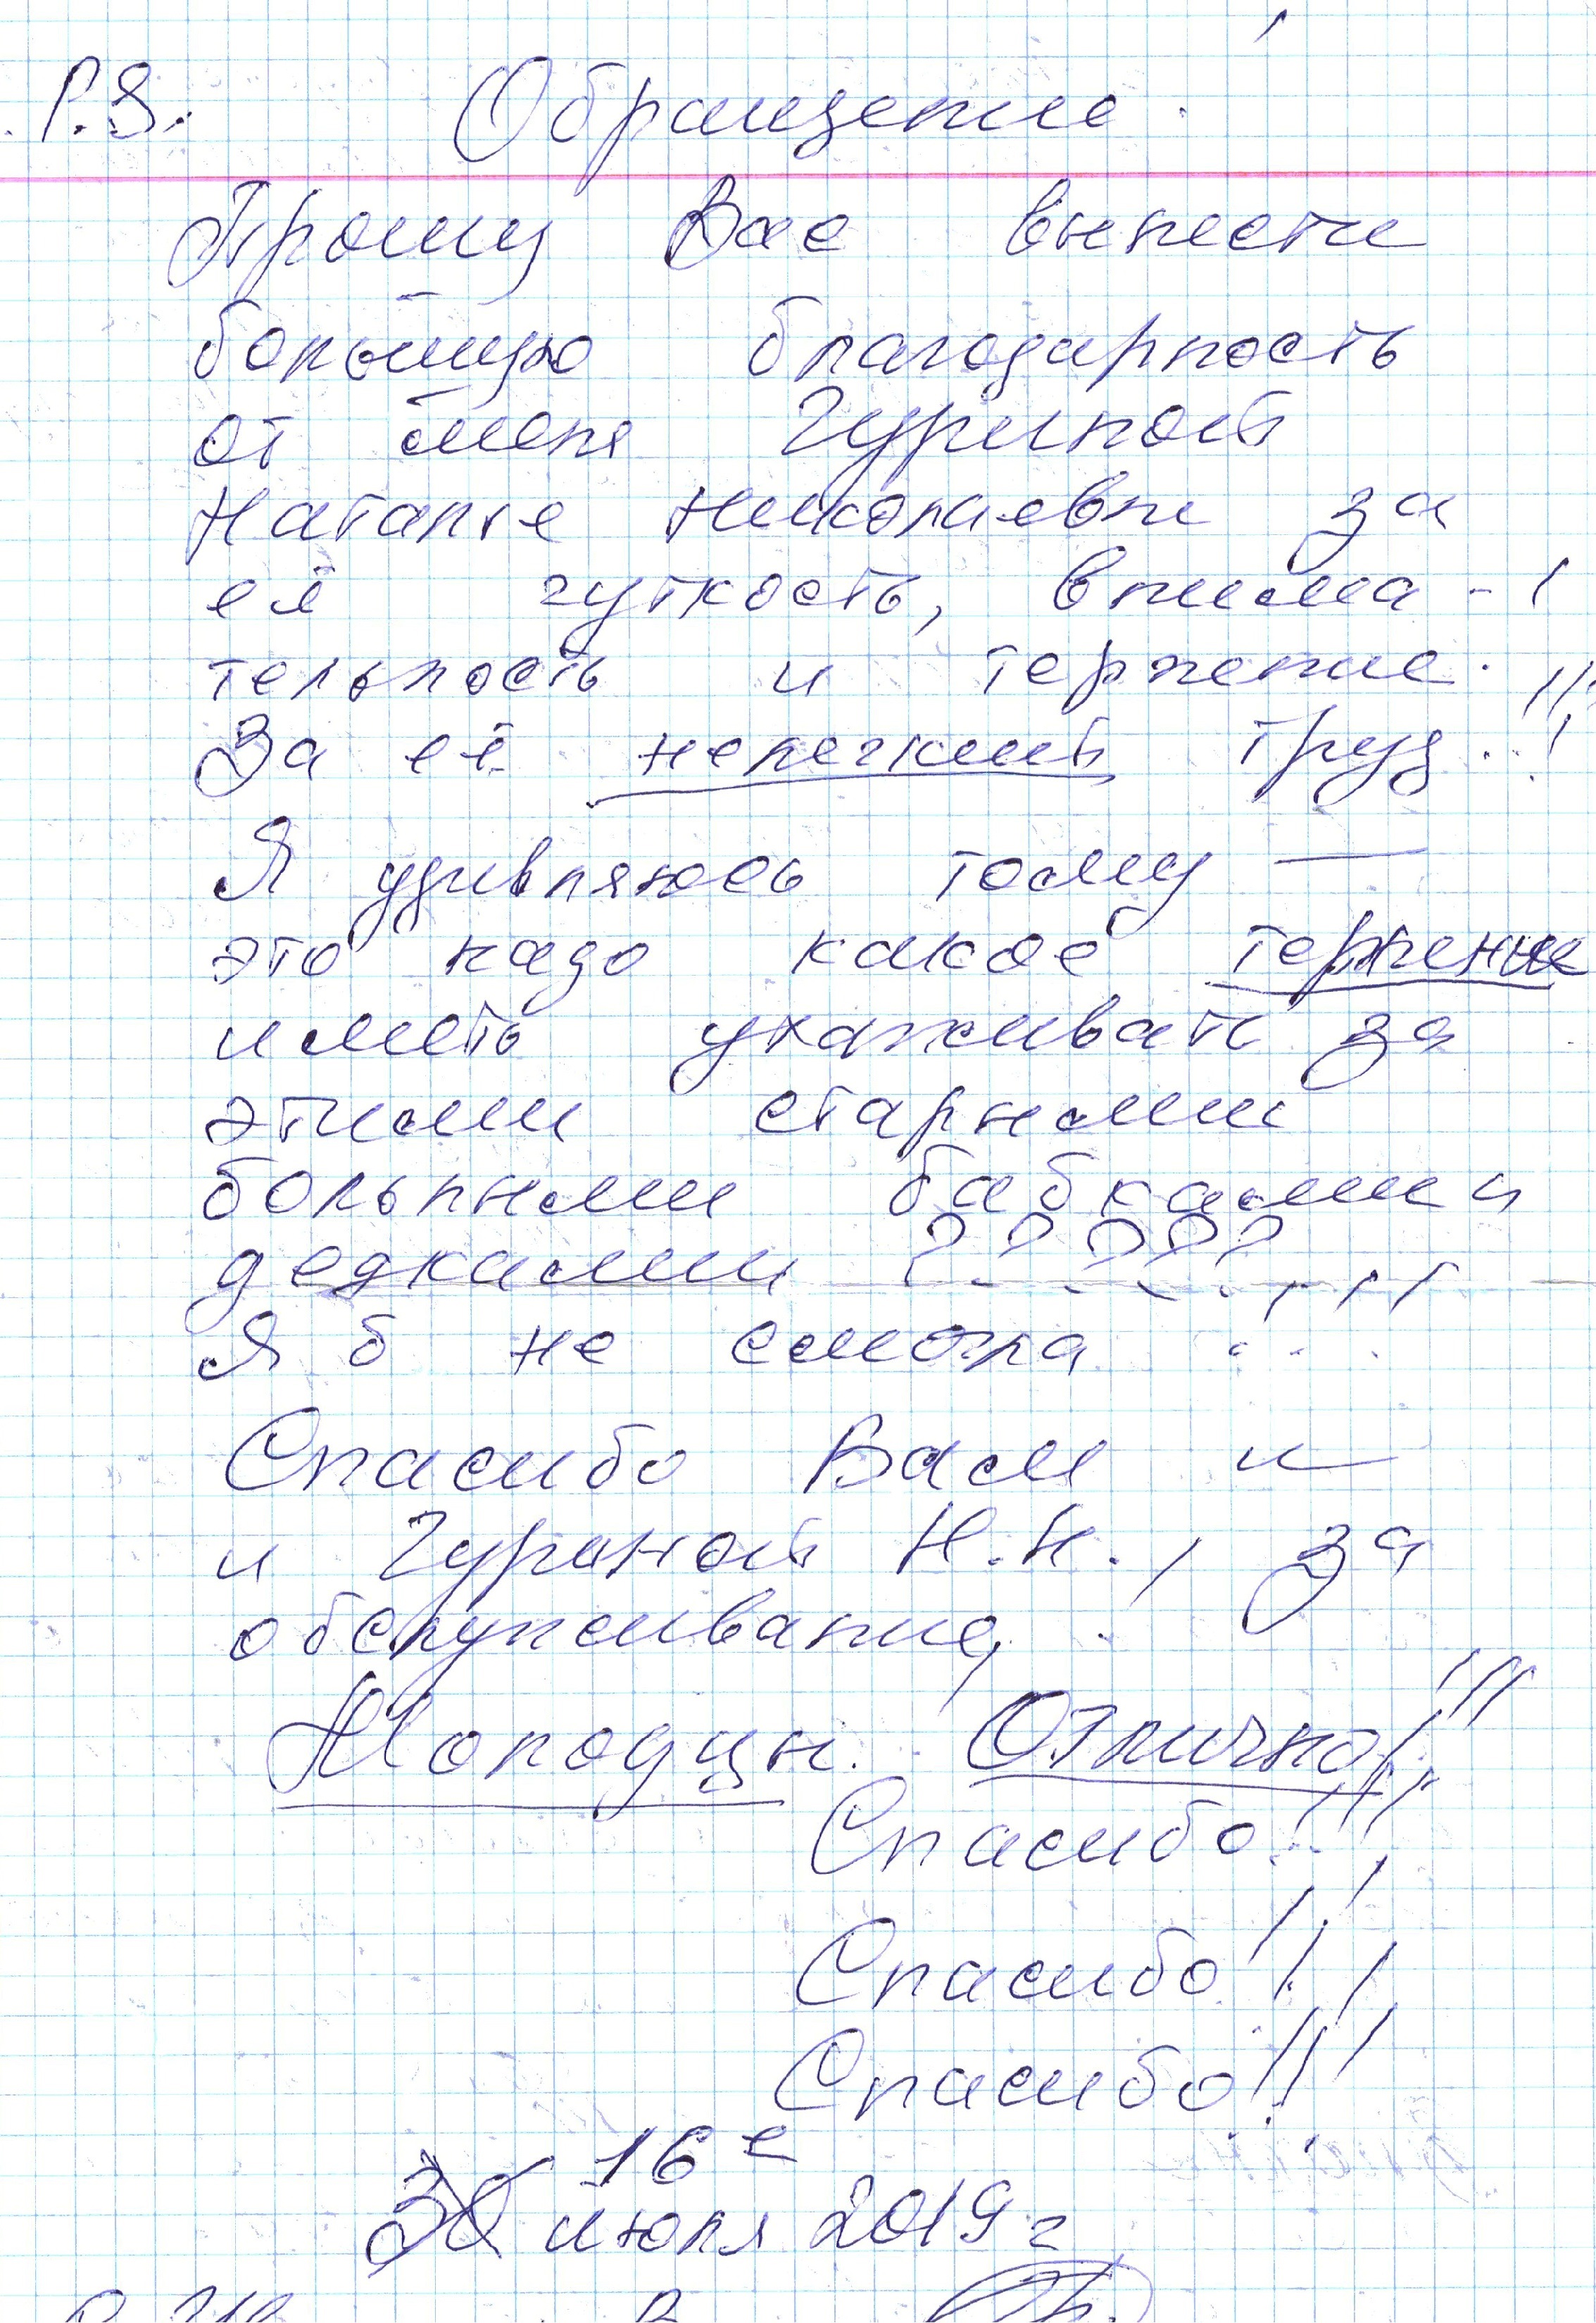 P.S. Обращение.
Прошу Вас вынести
большую благодарность
от меня Чуриной
Наталье Николаевны за
её чуткость, внима-
тельность и терпение.
За её нелегкий труд..!!!
Я удивляюсь тому —
это надо какое терпение
иметь ухаживать за
этими старыми
больными бабками и
дедками ?????
Я б не смогла !!!
Спасибо Вам и
и Чуриной Н.Н., за
обслуживание,
Молодцы. Отлично!!!
Спасибо!!!
Спасибо!!!
Спасибо!!!
16е
30 июля 2019 г